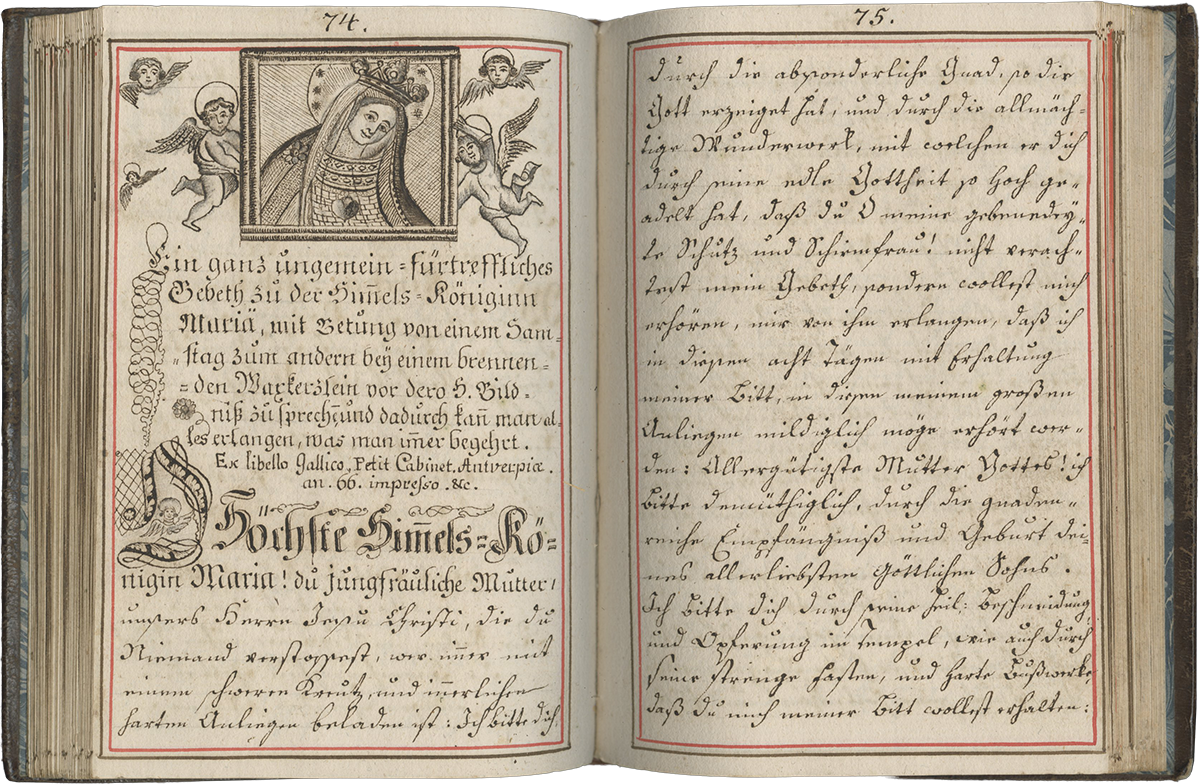 74.
Ein ganz ungemein=fürtreffliches
Gebeth zu der Him̄els=Königinn
Mariä, mit Betung von einem Sam=
=stag zum andern bey einem brennen=
=den Waxkerzlein vor dero H. Bild=
niß zu sprechen, und dadurch kan̄ man al=
les erlangen, was man im̄er begehrt.
Ex libello Gallico, Petit Cabinet. Antverpiæ.
an. 66. impresso. &c.
O Höchste Him̄els=Kö=
nigin Maria! du jungfräuliche Mutter
unsers Herrn Jesu Christi, die du
Niemand verstossest, wer im̄er mit
einem schweren Kreutz, und in̄erlichen
harten Anliegen beladen ist: Ich bitte dich,
75.
durch die absonderliche Gnad, so dir
Gott erzeiget hat, und durch die allmäch=
tige Wunderwerk, mit welchen er dich
durch seine edle Gottheit so hoch ge=
adelt hat, daß du O meine gebenedey=
te Schutz und Schirmfrau! nicht verach=
test mein Gebeth, sondern wollest mich
erhören, mir von ihm erlangen, daß ich
in diesen acht Tägen mit Erhaltung
meiner Bitt, in diesen meinem großen
Anliegen mildiglich möge erhört wer=
den: Allergütigste Mutter Gottes! ich
bitte demüthiglich, durch die gnaden=
reiche Empfängniß und Geburt dei=
nes allerliebsten Göttlichen Sohns.
Ich bitte dich durch seine heil: Beschneidung
und Opferung im Tempel, wie auch durch
seine strenge Fasten, und harte Bußwerke,
daß du mich meiner Bitt wollest erhalten: